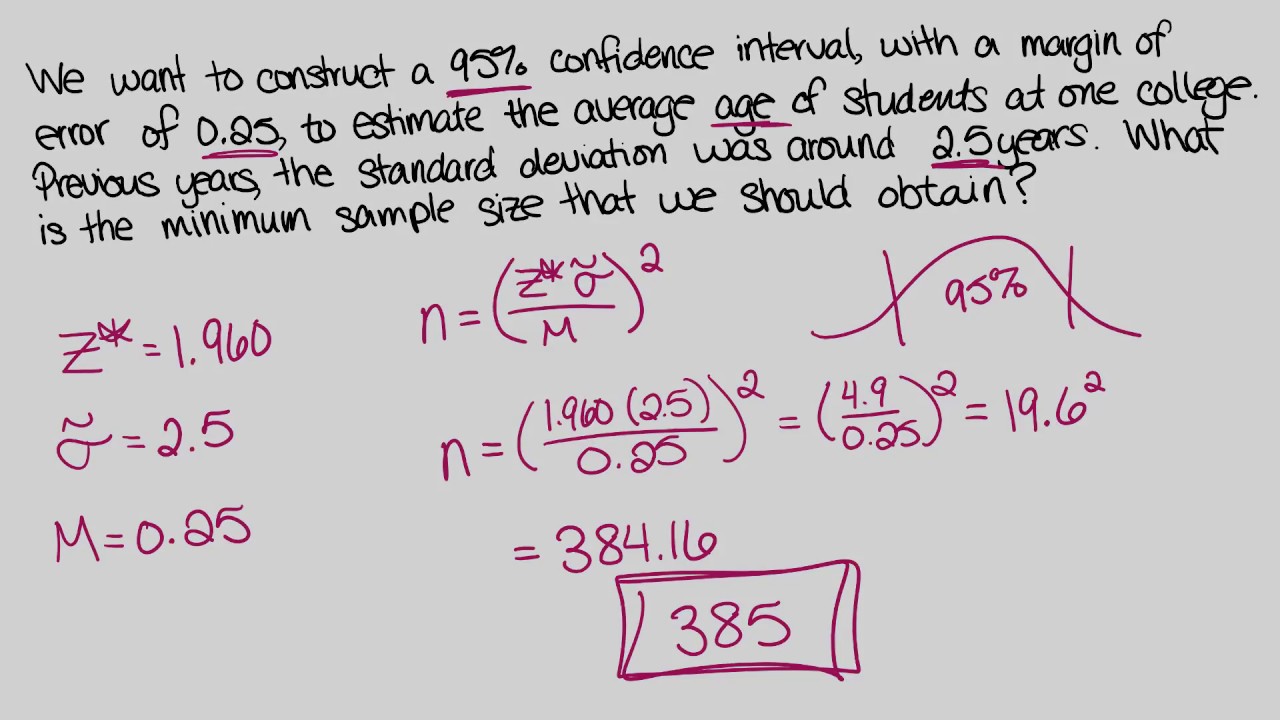 We want to construct a 95% confidence interval, with a margin of
error of 0.25, to estimate the average age of students at one college.
Previous years, the standard deviation was around 2.5 years. What
is the minimum sample size that we should obtain?
n = (z* σ̃ / M)²
95%
z* = 1.960
n = (1.960 (2.5) / 0.25)² = (4.9 / 0.25)² = 19.6²
σ̃ = 2.5
M = 0.25
= 384.16
385